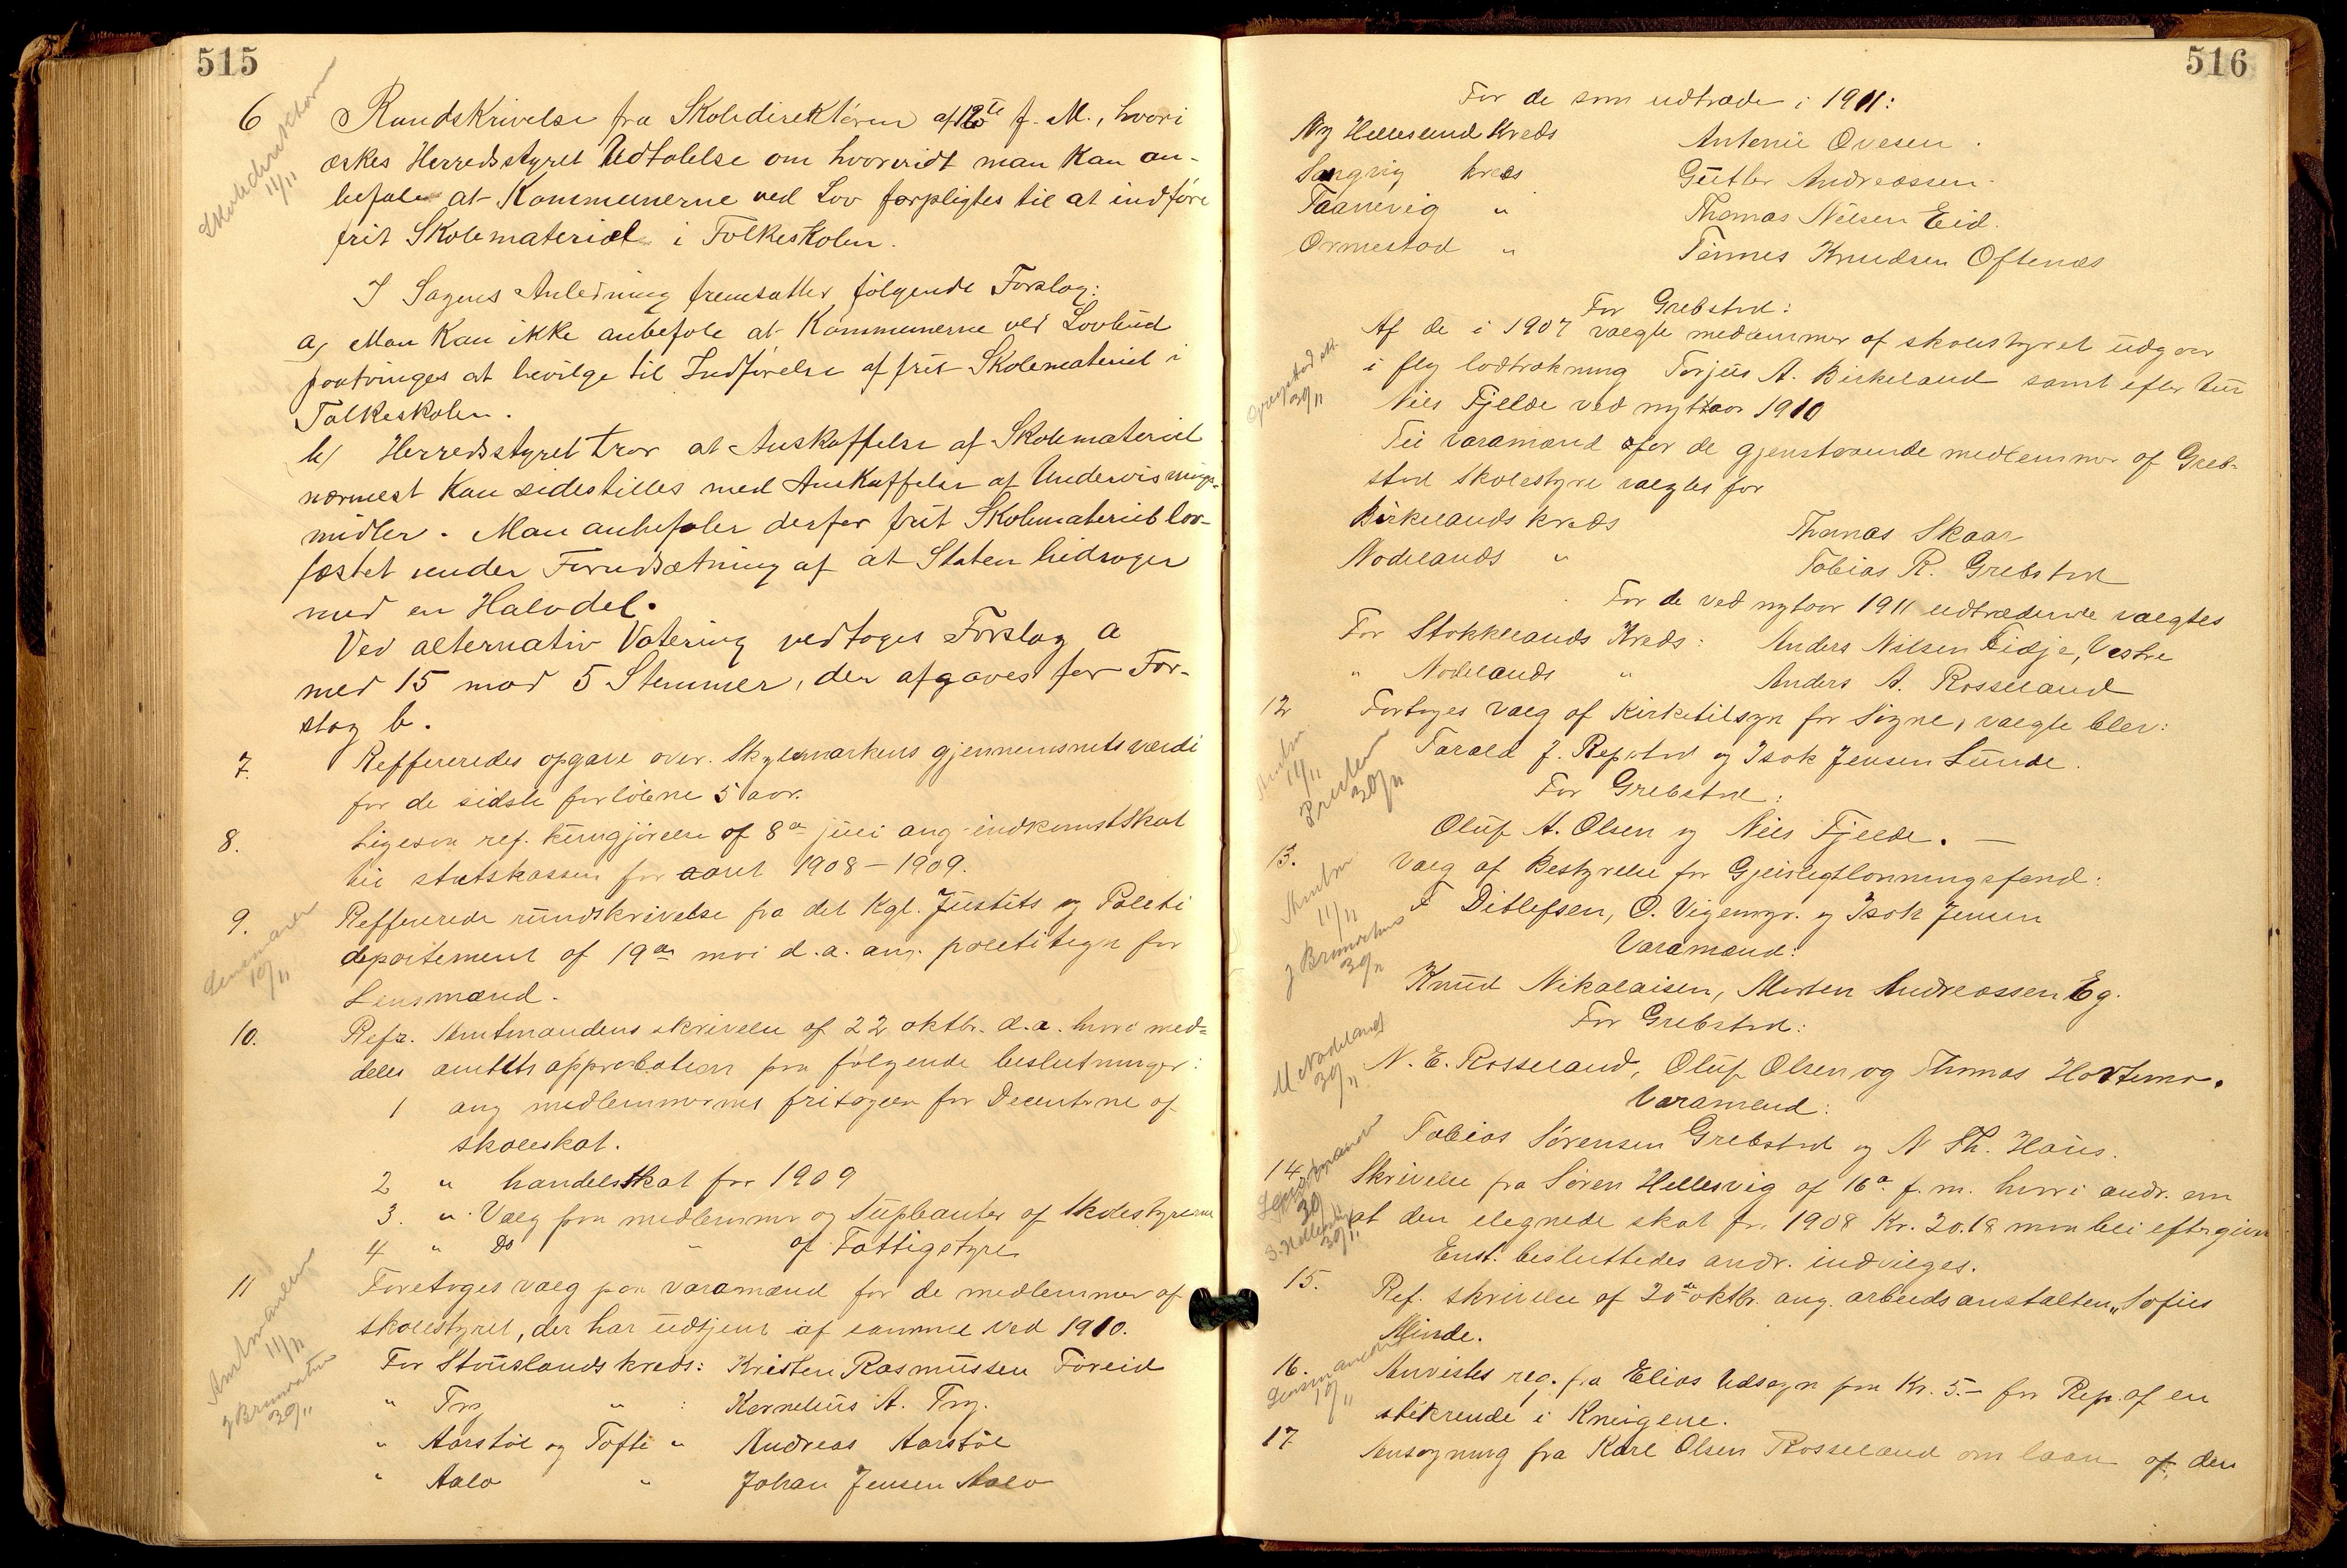 515
6 Rundskrivelse fra Skoledirektøren af 12te f. M., hvori
æskes Herredsstyret Udtalelse om hvorvidt man kan an-
befale at Kommunerne ved Lov forpligtes til at indføre
frit Skolemateriel i Folkeskolen.
Skoledirektøren
11/11
I Sagens Anledning fremsattes følgende Forslag:
a, Man kan ikke anbefale at Kommunerne ved Lovbud
paatvinges at bevilge til Indførelse af frit Skolemateriel i
Folkeskolen.
b/ Herredsstyret tror at Anskaffelse af Skolemateriel
nærmest kan sidestilles med Anskaffelse af Undervisnings-
midler. Man anbefaler derfor frit Skolemateriel lov-
fæstet under Forudsætning af at Staten bidrager
med en Halvdel.
Ved alternativ Votering vedtoges Forslag a
med 15 mod 5 Stemmer, der afgaves for For-
slag b.
7. Reffereredes opgave over Skyldmarkens gjennemsnitsværdi
for de sidste forløbne 5 aar.
8. Ligesaa ref. kundgjørelse af 8de juli ang indkomstskat
til statskassen for aaret 1908-1909.
9. Reffererede rundskrivelse fra det Kgl. Justits og Politi
departement af 19de mai d.a. ang. polititegn for
Lensmænd.
Lensmanden
10/11
10. Refr. Amtmandens skrivelse af 22 oktbr. d.a. hvori med=
deles amtets approbation paa følgende beslutninger:
1 ang medlemmernes fritagelse for Decenterne af
skoleskat.
2 " handelsskat for 1909
3. " Valg paa medlemmer og Supleanter af Skolestyrerne
4 " Do " af Fattigstyre
11 Foretoges valg paa varamænd for de medlemmer af
skolestyret, der har udtjent af samme ved 1910.
Amtmanden
11/11
J Brunvatne
30/11
For Stauslands kreds: Kristen Rasmussen Føreid
" Try " : Kornelius A. Try.
" Aarstøl og Tofte " Andreas Aarstøl
" Aalo " Johan Jensen Aalo
516
For de som udtræde i 1911:
Ny Hellesund Kreds Antonie Ovesen.
Langvig kreds Gütler Andreassen
Taanevig " Thomas Nilsen Eid.
Ormestad " Tønnes Knudsen Oftenæs
For Grebstad:
Af de i 1907 valgte medlemmer af skolestyret udgaar
i flg lodtrækning Torjus A. Birkeland samt efter tur
Niels Fjelde ved nytaar 1910
30/11
Til varamænd for de gjenstaaende medlemmer af Greb-
stad Skolestyre valgtes for
Birkelands kreds Thomas Skaar
Nodelands " Tobias R. Grebstad
For de ved nytaar 1911 udtrædende valgtes
For Stokkelands Kreds: Anders Nilsen Fidje, Vestre
" Nodelands " Anders A. Rosseland
12 Fortoges Valg af Kirketilsyn for Søgne, valgte blev:
Tarald J. Repstad og Isak Jensen Lunde.
11/11
Presten
30/11
For Grebstad:
Oluf A. Olsen og Niels Fjelde. —
13. Valg af Bestyrelse for Gjeistligtlønningsfond:
F Ditlefsen, O. Vigemyr. og Isak Jensen
Varamænd:
11/11
J Brunvatne
30/11
Knud Nikolaisen, Morten Andreassen Eg.
For Grebstad:
N. E. Rosseland, Oluf Olsen og Thomas Hortemo.
M Nodeland
30/11
Varamænd:
Tobias Sørensen Grebstad og N Th. Haus.
14 Skrivelse fra Søren Hellesvig af 16de f.m. hvori andr. om
at den elegnede skat for 1908 Kr. 20.18 maa bli eftergivet
Enst. besluttedes andr. indvilges.
Lensmanden
30/11
S. Hellesvig
30/11
15. Ref. skrivelse af 20de oktbr. ang. arbeidsanstalten „Sofies
Minde.
16. Anvistes reg. fra Elias Udsogn paa Kr. 5.- for Rep. af en
stikrende i Kneigene.
Lensmanden
10/11
17. Ansøgning fra Karl Olsen Rosseland om laan af den